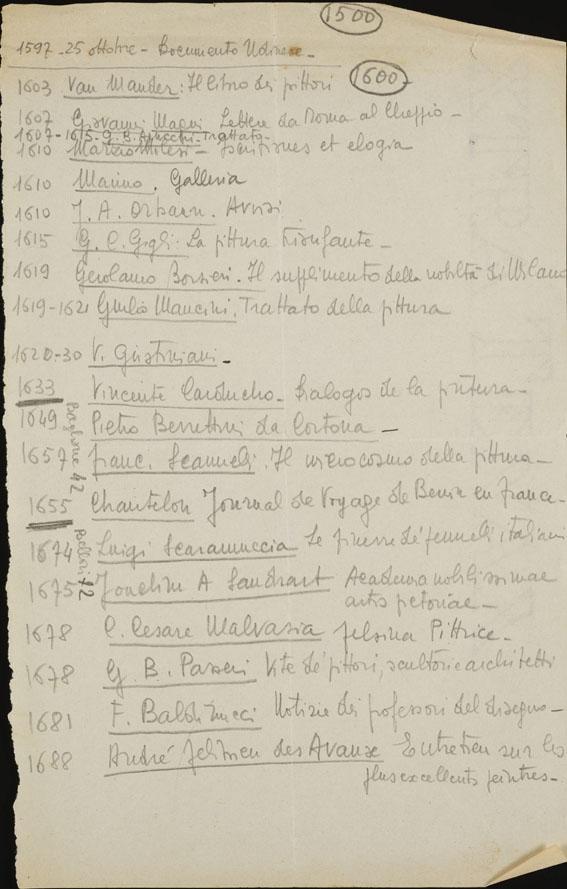 1500
1597 - 25 ottobre - Documento Udinese -
1600
1603 Van Mander: Il libro dei pittori
1607 Giovanni Magni Lettere da Roma al Cheppio -
1607-1615 - G. B. Agucchi: Trattato -
1610 Marzio Milesi - Iscritiones et elogia
1610 Marino. Galleria
1610 J. A. Orbaan. Avvisi
1615 G. C. Gigli: La pittura trionfante -
1619 Gerolamo Borsieri. Il supplimento della nobiltà di Milano
1619-1621 Giulio Mancini. Trattato della pittura
1620-30 V. Giustiniani -
1633 Vincente Carducho - Dialogos de la pintura -
Baglione 42
1649 Pietro Berrettini da Cortona -
1657 Franc. Scannelli. Il microcosmo della pittura -
1655 Chantelou Journal de Voyage de Bernin en France -
Bellori 72
1674 Luigi Scaramuccia Le finezze de' pennelli italiani
1675 Joachim A Sandrart Academia nobilissimae
artis pictoriae -
1678 C. Cesare Malvasia Felsina Pittrice -
1678 G. B. Passeri Vite de' pittori, scultori e architetti
1681 F. Baldinucci Notizie dei professori del disegno -
1688 André Félibien des Avaux Entretien sur les
plus excellents peintres -